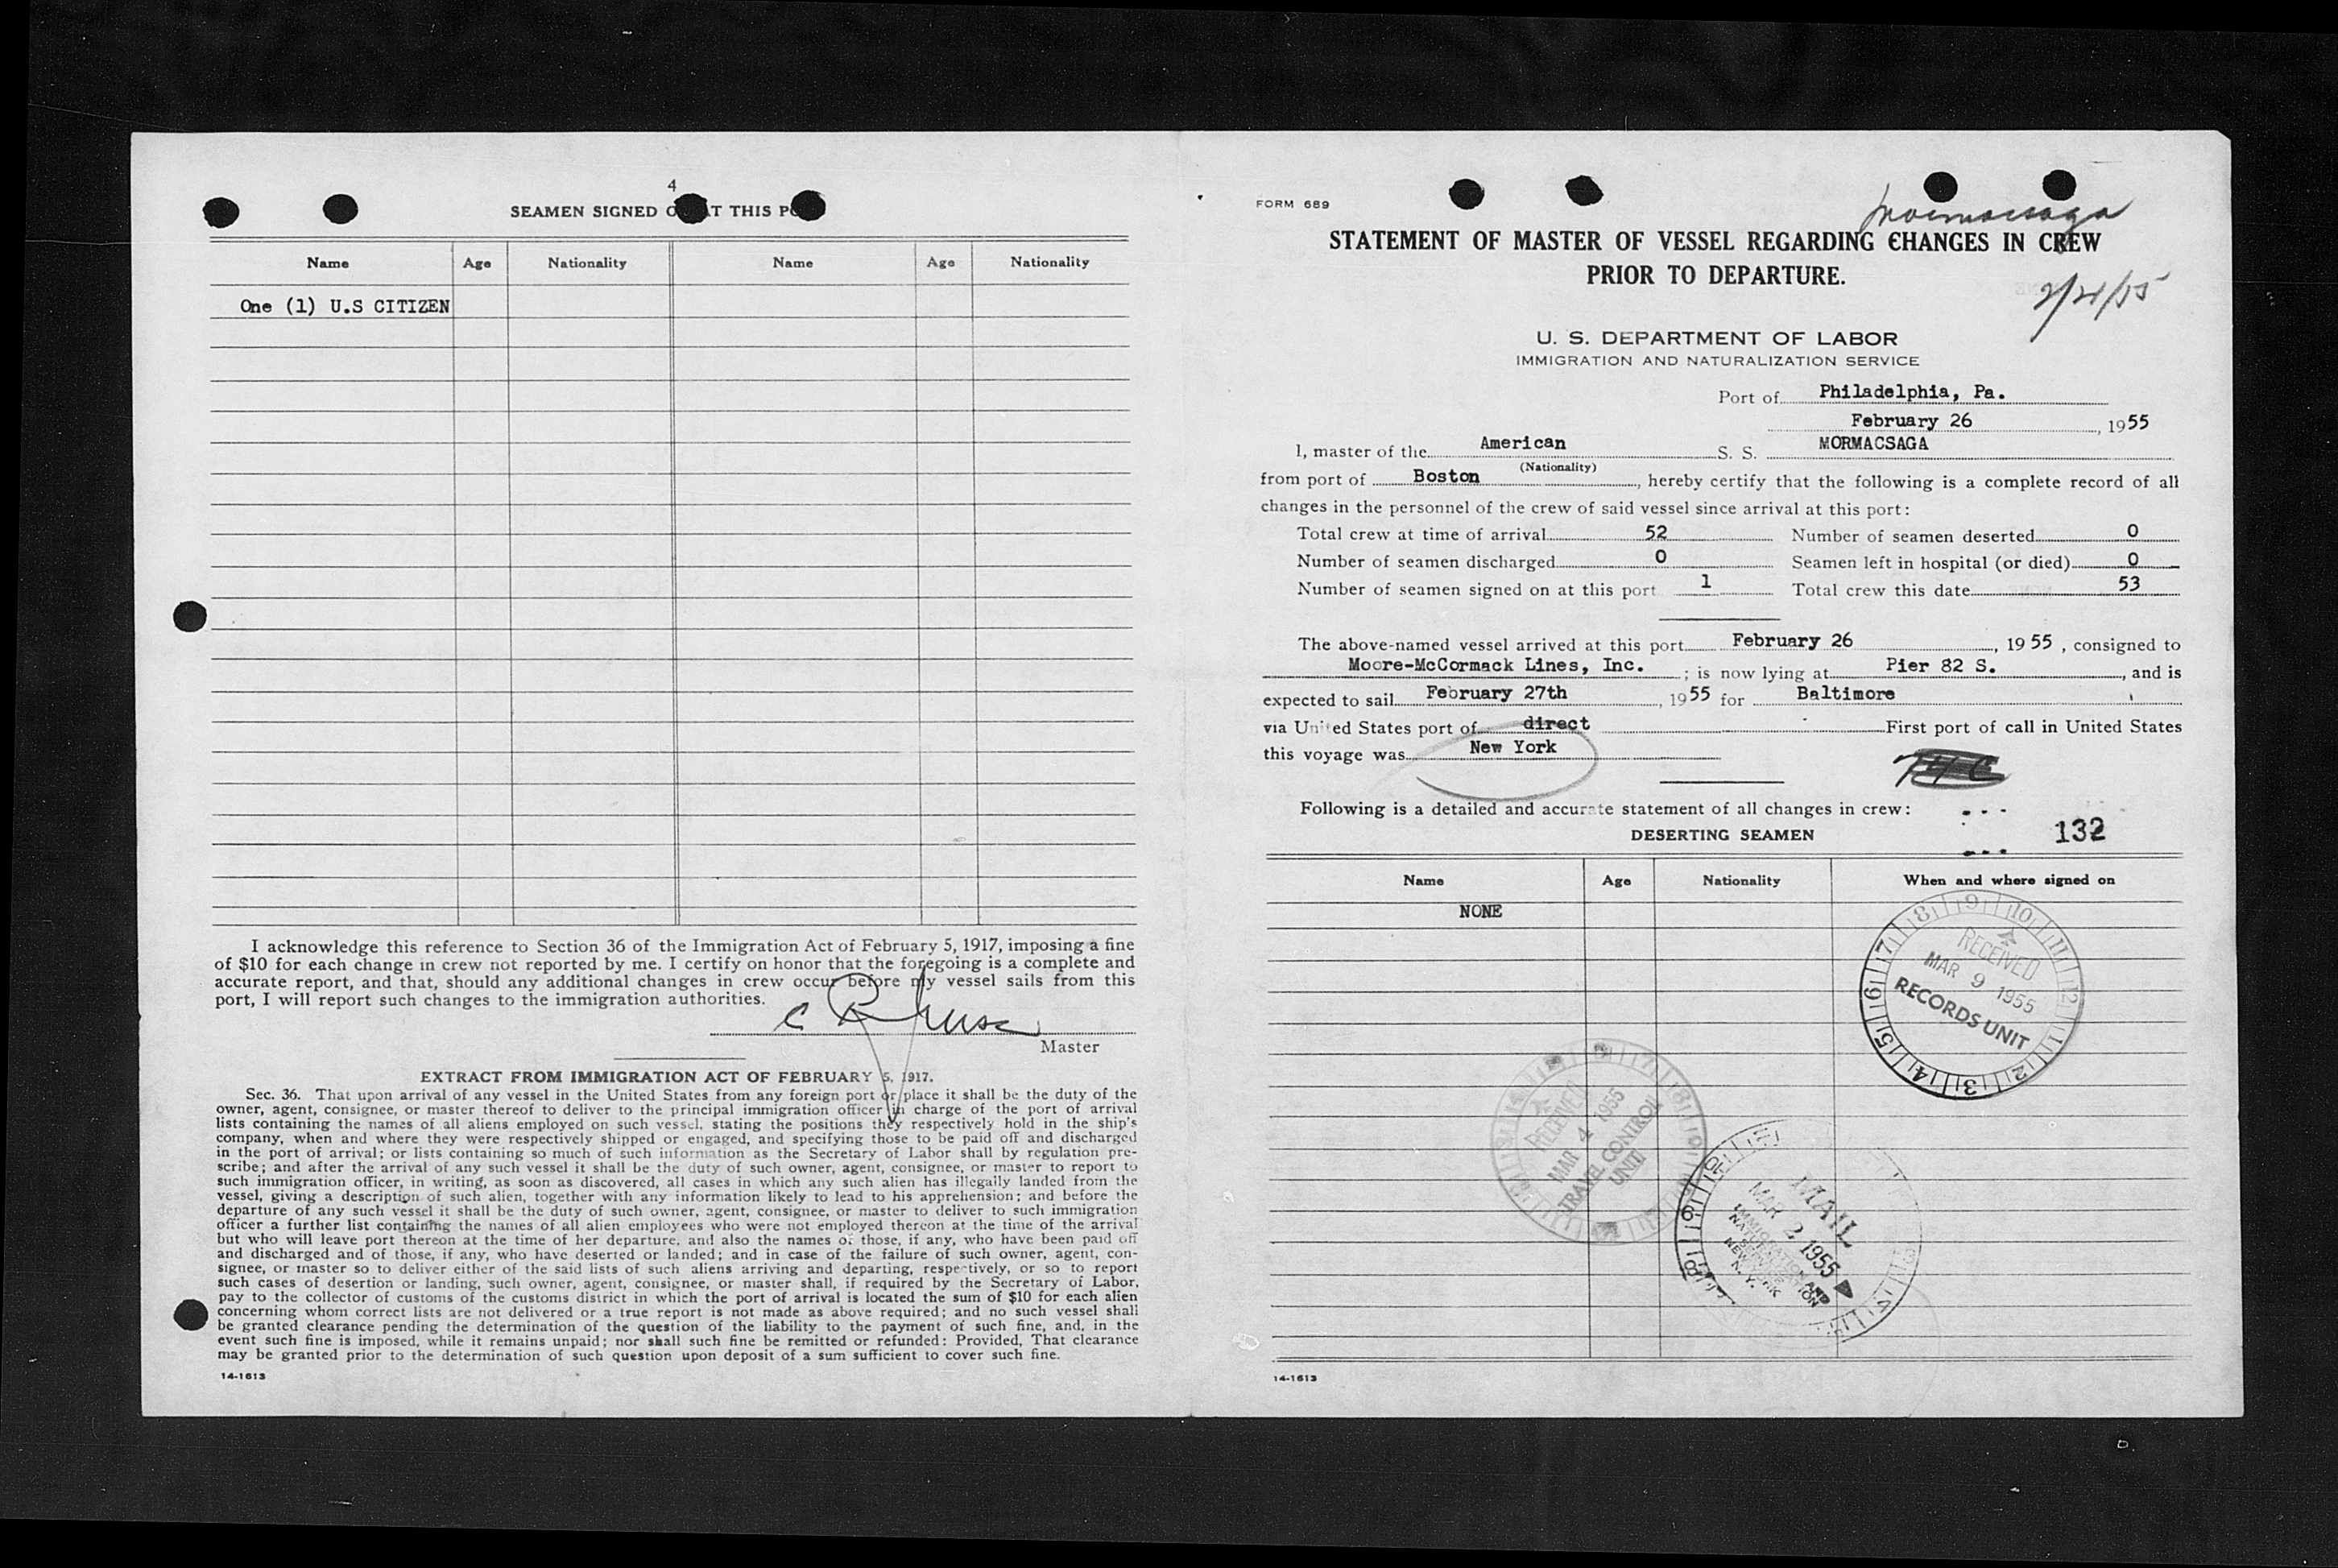 4
SEAMEN SIGNED O AT THIS PO
Name Age Nationality Name Age Nationality
One (1) U.S CITIZEN
I acknowledge this reference to Section 36 of the Immigration Act of February 5, 1917, imposing a fine
of $10 for each change in crew not reported by me. I certify on honor that the foregoing is a complete and
accurate report, and that, should any additional changes in crew occur before my vessel sails from this
port, I will report such changes to the immigration authorities.
Master
EXTRACT FROM IMMIGRATION ACT OF FEBRUARY 5, 1917.
Sec. 36. That upon arrival of any vessel in the United States from any foreign port or place it shall be the duty of the
owner, agent, consignee, or master thereof to deliver to the principal immigration officer in charge of the port of arrival
lists containing the names of all aliens employed on such vessel, stating the positions they respectively hold in the ship's
company, when and where they were respectively shipped or engaged, and specifying those to be paid off and discharged
in the port of arrival; or lists containing so much of such information as the Secretary of Labor shall by regulation pre-
scribe; and after the arrival of any such vessel it shall be the duty of such owner, agent, consignee, or master to report to
such immigration officer, in writing, as soon as discovered, all cases in which any such alien has illegally landed from the
vessel, giving a description of such alien, together with any information likely to lead to his apprehension; and before the
departure of any such vessel it shall be the duty of such owner, agent, consignee, or master to deliver to such immigration
officer a further list containing the names of all alien employees who were not employed thereon at the time of the arrival
but who will leave port thereon at the time of her departure, and also the names of those, if any, who have been paid off
and discharged and of those, if any, who have deserted or landed; and in case of the failure of such owner, agent, con-
signee, or master so to deliver either of the said lists of such aliens arriving and departing, respectively, or so to report
such cases of desertion or landing, such owner, agent, consignee, or master shall, if required by the Secretary of Labor,
pay to the collector of customs of the customs district in which the port of arrival is located the sum of $10 for each alien
concerning whom correct lists are not delivered or a true report is not made as above required; and no such vessel shall
be granted clearance pending the determination of the question of the liability to the payment of such fine, and, in the
event such fine is imposed, while it remains unpaid; nor shall such fine be remitted or refunded: Provided, That clearance
may be granted prior to the determination of such question upon deposit of a sum sufficient to cover such fine.
14-1613
FORM 689
Mormacsaga
STATEMENT OF MASTER OF VESSEL REGARDING CHANGES IN CREW
PRIOR TO DEPARTURE.
2/21/55
U. S. DEPARTMENT OF LABOR
IMMIGRATION AND NATURALIZATION SERVICE
Port of Philadelphia, Pa.
February 26, 1955
I, master of the American S. S. MORMACSAGA
(Nationality)
from port of Boston, hereby certify that the following is a complete record of all
changes in the personnel of the crew of said vessel since arrival at this port:
Total crew at time of arrival 52 Number of seamen deserted 0
Number of seamen discharged 0 Seamen left in hospital (or died) 0
Number of seamen signed on at this port 1 Total crew this date 53
The above-named vessel arrived at this port February 26, 1955, consigned to
Moore-McCormack Lines, Inc.; is now lying at Pier 82 S., and is
expected to sail February 27th, 1955 for Baltimore
via United States port of direct First port of call in United States
this voyage was New York
Following is a detailed and accurate statement of all changes in crew:
132
DESERTING SEAMEN
Name Age Nationality When and where signed on
NONE
RECEIVED
MAR 9 1955
RECORDS UNIT
RECEIVED
MAR 4 1955
TRAVEL CONTROL
UNIT
MAIL
MAR 2 1955
IMMIGRATION AND
NATURALIZATION
SERVICE
NEW YORK
N. Y.
14-1613